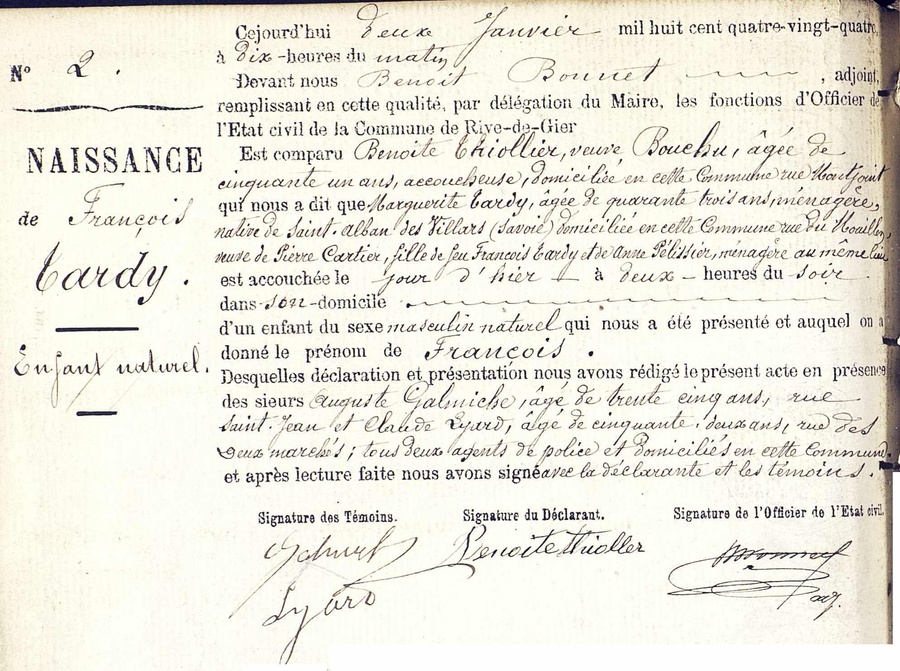 Nº 2.
NAISSANCE
de François
Tardy.
Enfant naturel.
Cejourd'hui deux Janvier mil huit cent quatre-vingt-quatre,
à dix-heures du matin
Devant nous Benoit Bonnet, adjoint,
remplissant en cette qualité, par délégation du Maire, les fonctions d'Officier de
l'Etat civil de la Commune de Rive-de-Gier
Est comparu Benoite Thiollier, veuve Bouchu, âgée de
cinquante un ans, accoucheuse, domiciliée en cette Commune rue Montjoint
qui nous a dit que Marguerite Tardy, âgée de quarante trois ans, ménagère,
native de Saint-Alban des Villars (Savoie) domiciliée en cette Commune rue du
veuve de Pierre Cartier, fille de feu François Tardy et de Anne Pélissier, ménagère au même lieu
est accouchée le jour d'hier à deux heures du soir
dans son domicile
d'un enfant du sexe masculin naturel qui nous a été présenté et auquel on a
donné le prénom de François.
Desquelles déclaration et présentation nous avons rédigé le présent acte en présence
des sieurs Auguste Galmiche, âgé de trente cinq ans, rue
Saint-Jean et Claude Lyard, âgé de cinquante-deux ans, rue des
deux marchés; tous deux agents de police et domiciliés en cette Commune.
et après lecture faite nous avons signé avec la déclarante et les témoins.
Signature des Témoins. Signature du Déclarant. Signature de l'Officier de l'Etat civil.
Benoite Thioller
Lyard